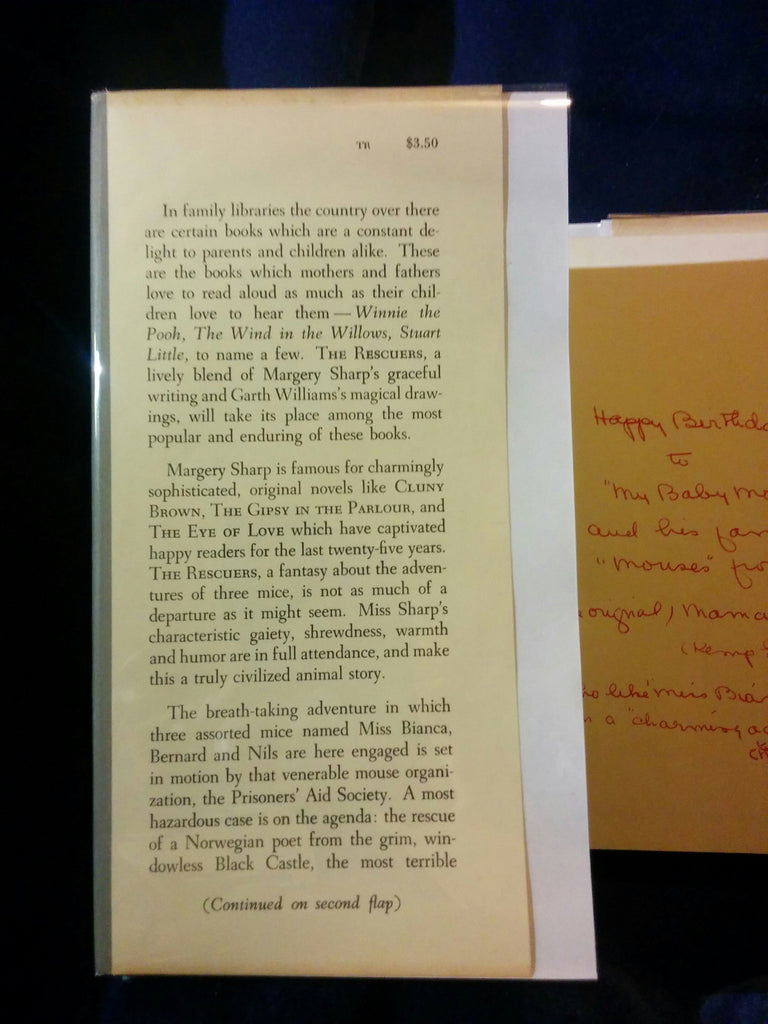 TR $3.50
In family libraries the country over there
are certain books which are a constant de-
light to parents and children alike. These
are the books which mothers and fathers
love to read aloud as much as their chil-
dren love to hear them — Winnie the
Pooh, The Wind in the Willows, Stuart
Little, to name a few. THE RESCUERS, a
lively blend of Margery Sharp's graceful
writing and Garth Williams's magical draw-
ings, will take its place among the most
popular and enduring of these books.
Margery Sharp is famous for charmingly
sophisticated, original novels like CLUNY
BROWN, THE GIPSY IN THE PARLOUR, and
THE EYE OF LOVE which have captivated
happy readers for the last twenty-five years.
THE RESCUERS, a fantasy about the adven-
tures of three mice, is not as much of a
departure as it might seem. Miss Sharp's
characteristic gaiety, shrewdness, warmth
and humor are in full attendance, and make
this a truly civilized animal story.
The breath-taking adventure in which
three assorted mice named Miss Bianca,
Bernard and Nils are here engaged is set
in motion by that venerable mouse organi-
zation, the Prisoners' Aid Society. A most
hazardous case is on the agenda: the rescue
of a Norwegian poet from the grim, win-
dowless Black Castle, the most terrible
(Continued on second flap)
Happy Birthda
to
"My Baby Mo
and his fam
"mouses" fro
original) Mama
like Miss Bian
a "charming